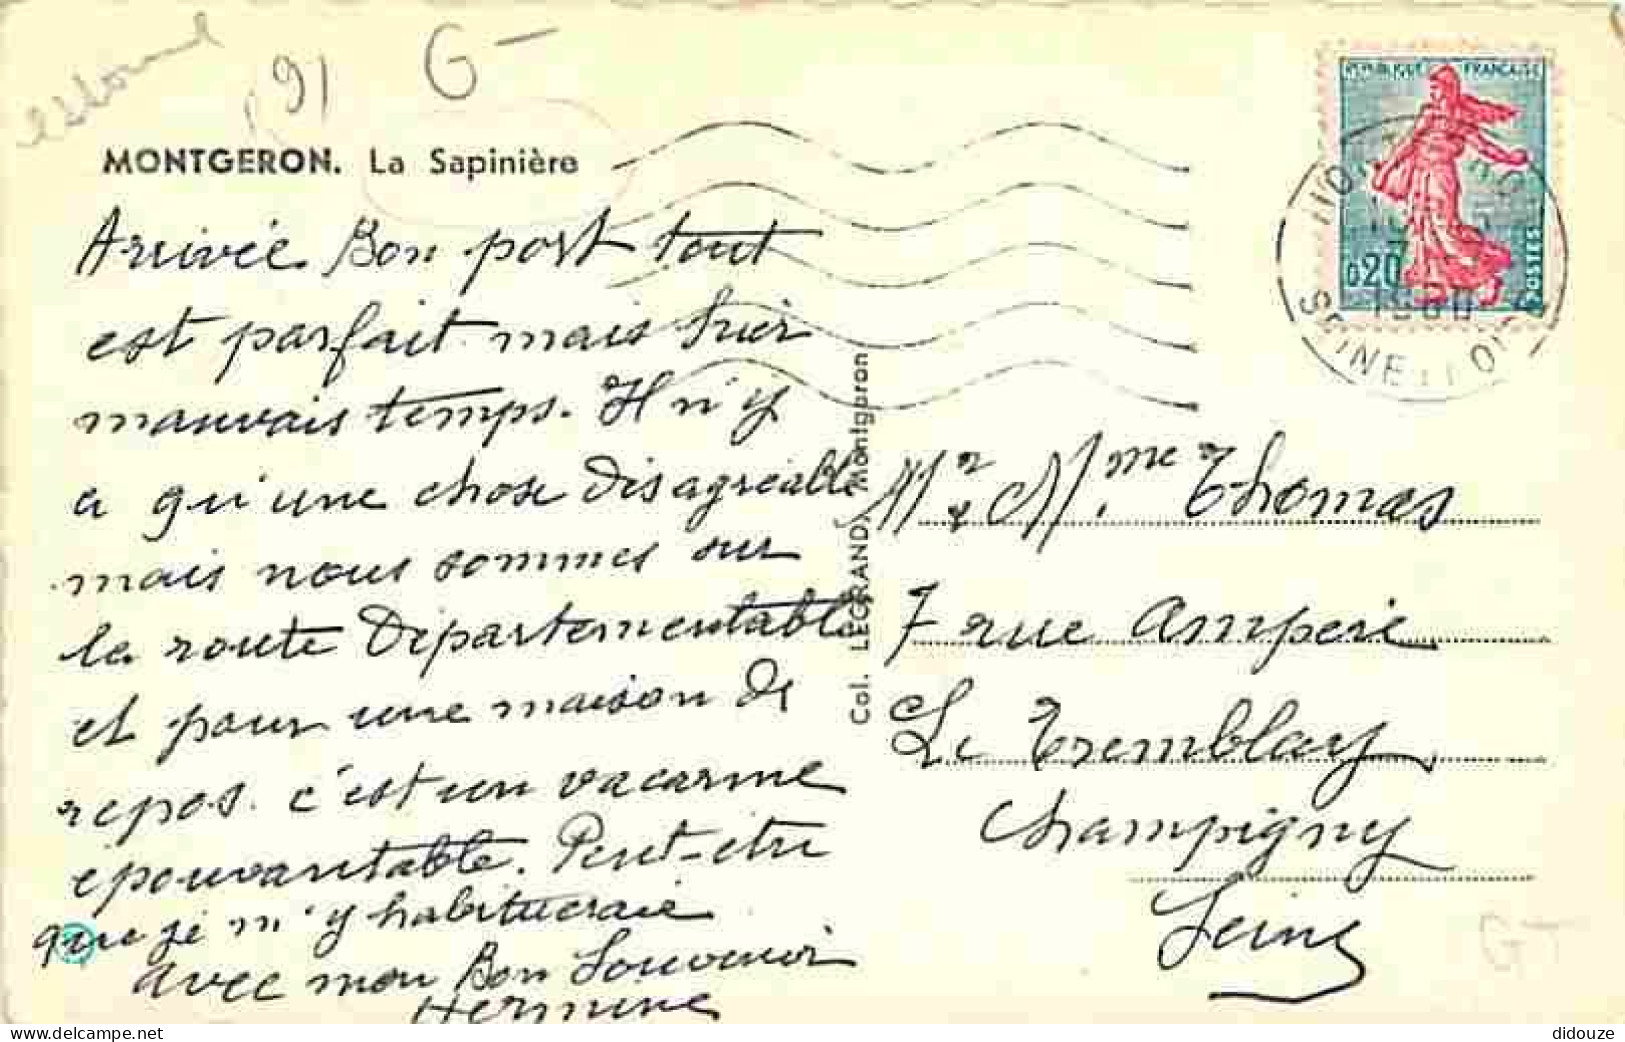 essonne
(91
G-
MONTGERON. La Sapinière
REPUBLIQUE FRANÇAISE
0,20
POSTES
1960
SEINE ET OISE
Arrivée Bon port tout
est parfait mais hier
mauvais temps. Il n'y
a qu'une chose disagréable
mais nous sommes sur
la route Départementable
et pour une maison de
repos. c'est un vacarme
épouvantable. Peut-être
que je m'y habituerais
avec mon Bon Souvenir
Hermine
Col. LEGRAND, Montgeron
Mr & Mme Thomas
7 rue Ampere
Le Tremblay
Champigny
Seine
G-
didouze